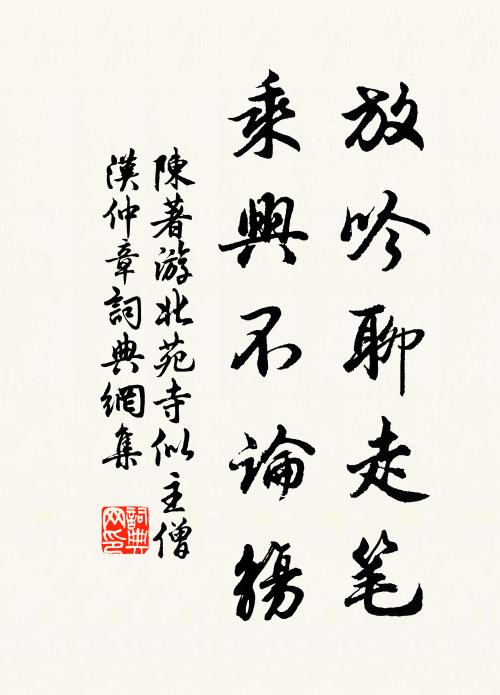 放吟聊走笔
乘興不論觴
陳著游北苑寺似主僧
漢仲章詞典網集
詞典网印